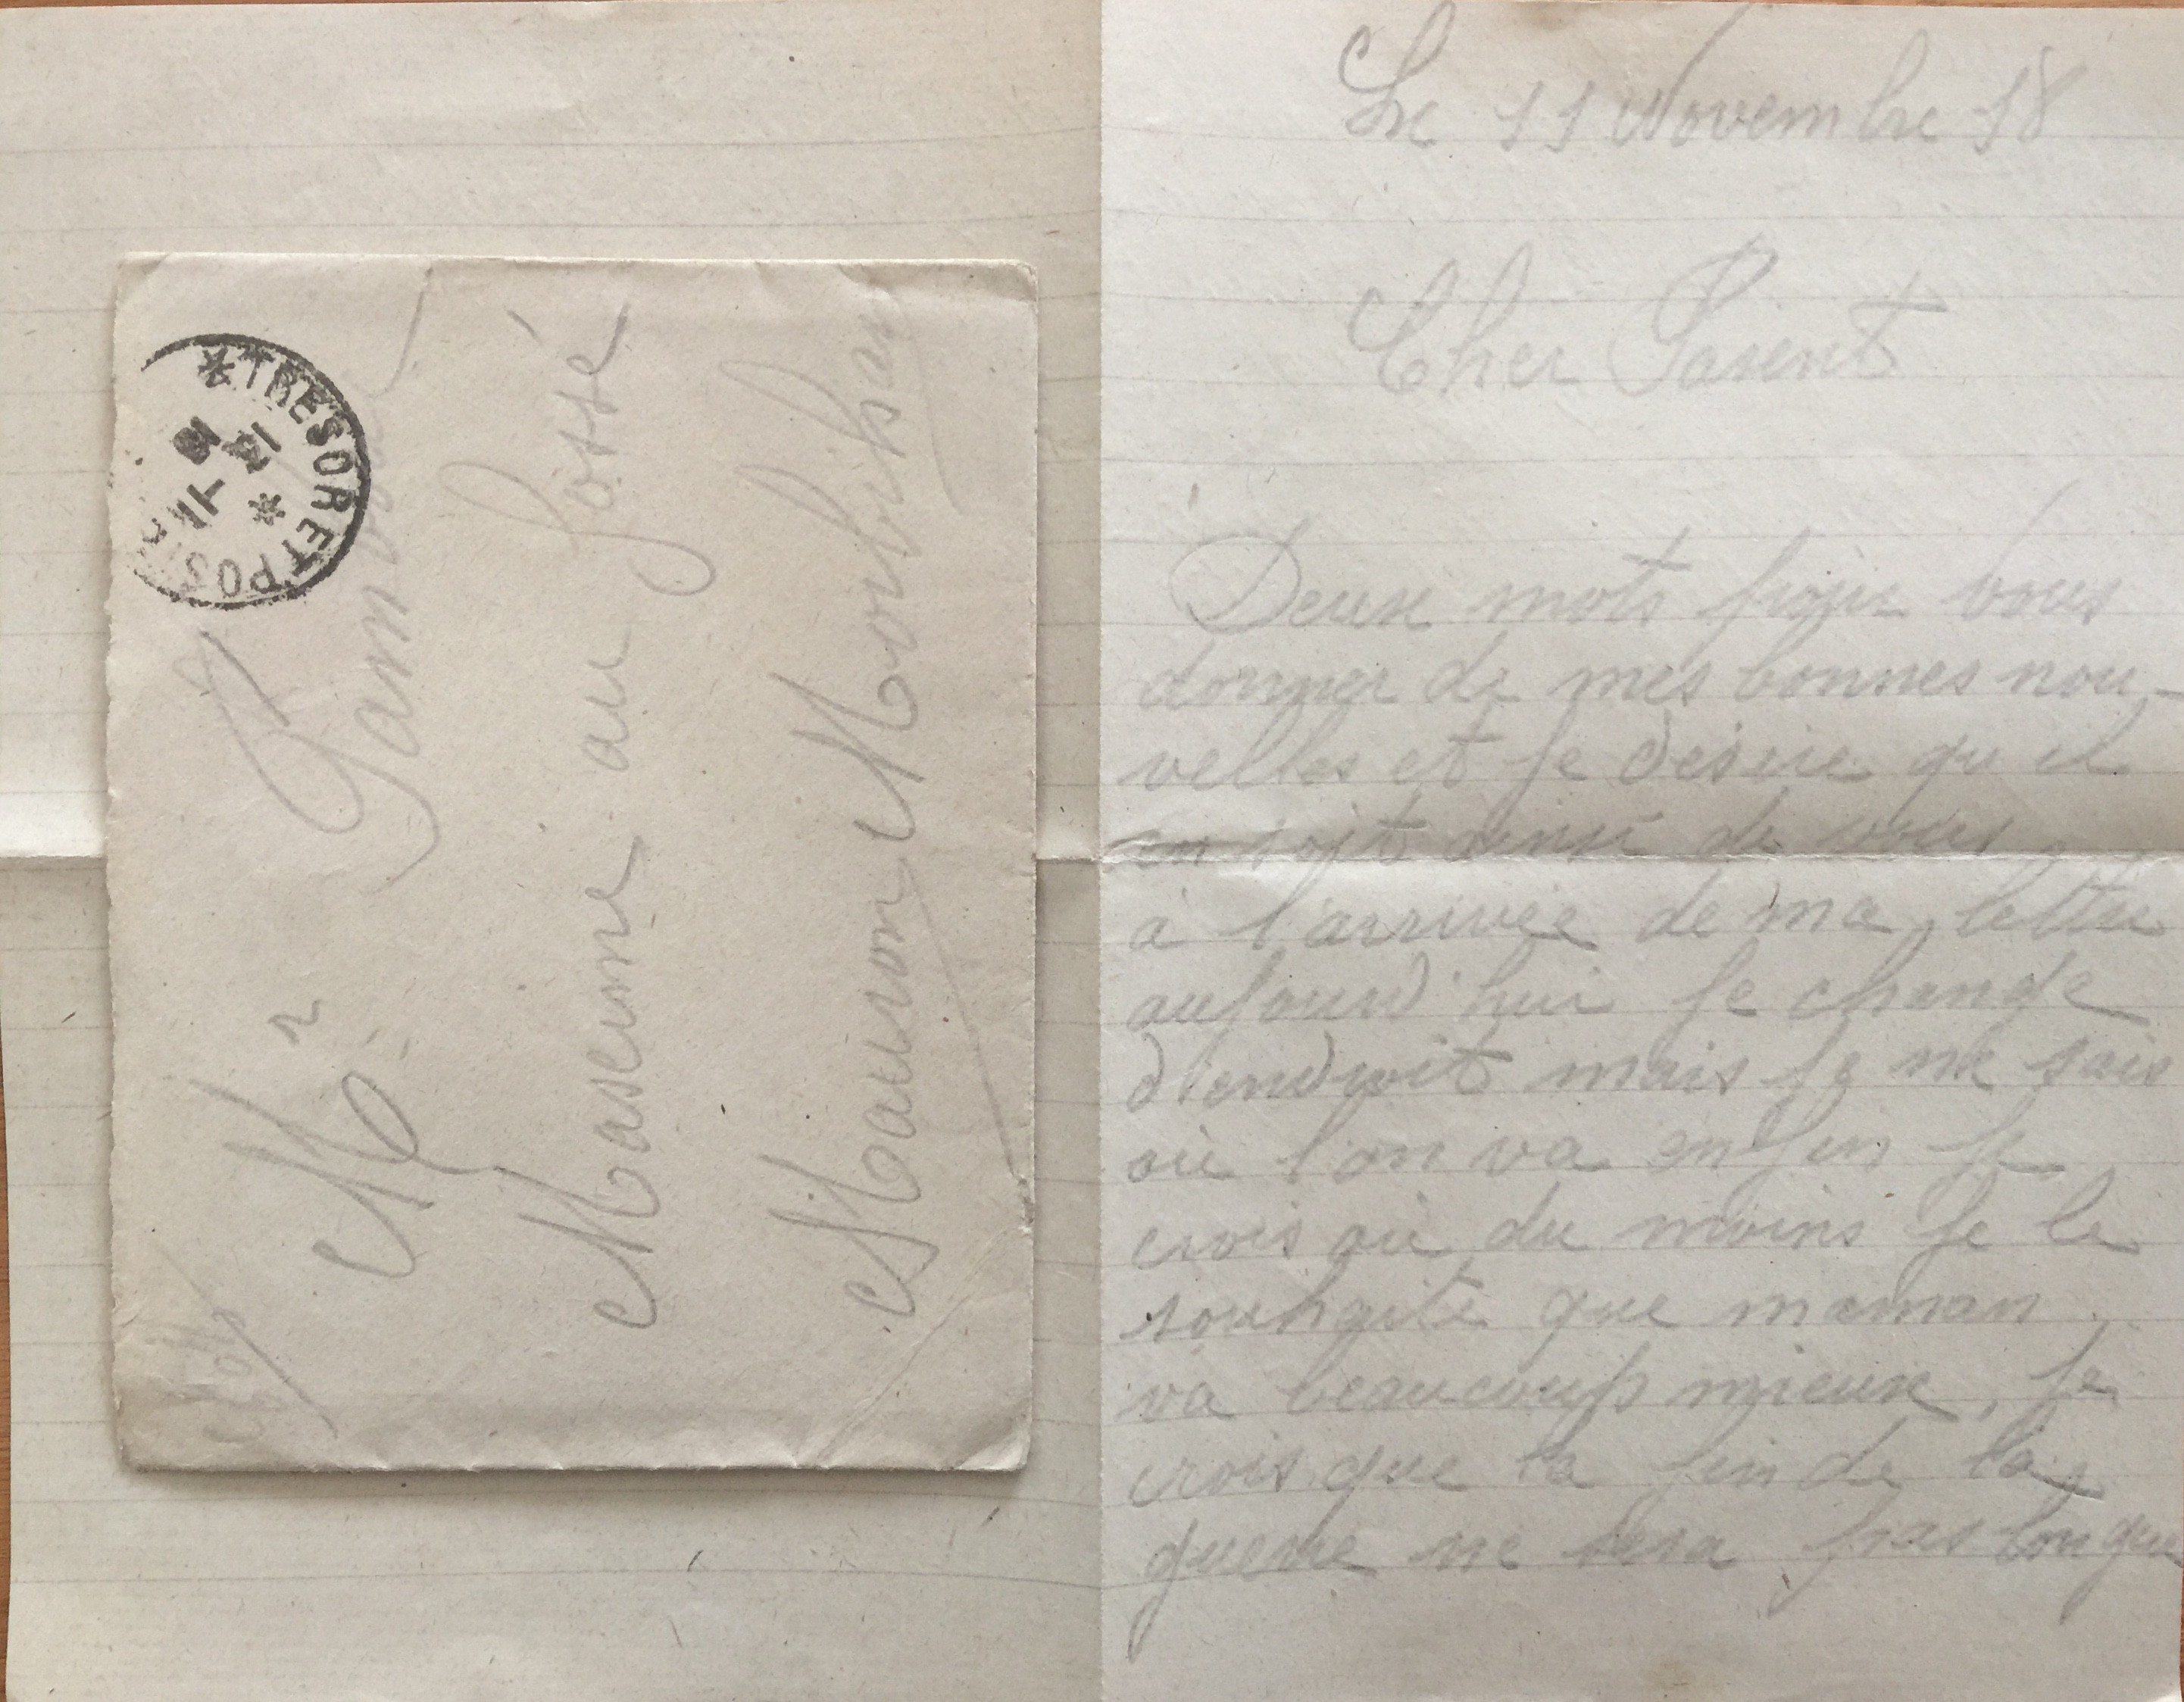 *TRESOR ET POS
*
12
-11
18
Mr
Masemne au Fossé
Mauron Morbihan
Le 11 Novembre 18
Cher Parent
Deux mots pour vous
donner de mes bonnes nou-
velles et je désire qu il
en soit ainsi de vous
à l'arrivée de ma lettre
aujourd'hui je change
d'endroit mais je ne sais
où l'on va enfin je
crois ou du moins je le
souhaite que maman
va beaucoup mieux, je
crois que la fin de la
guerre ne sera pas longue